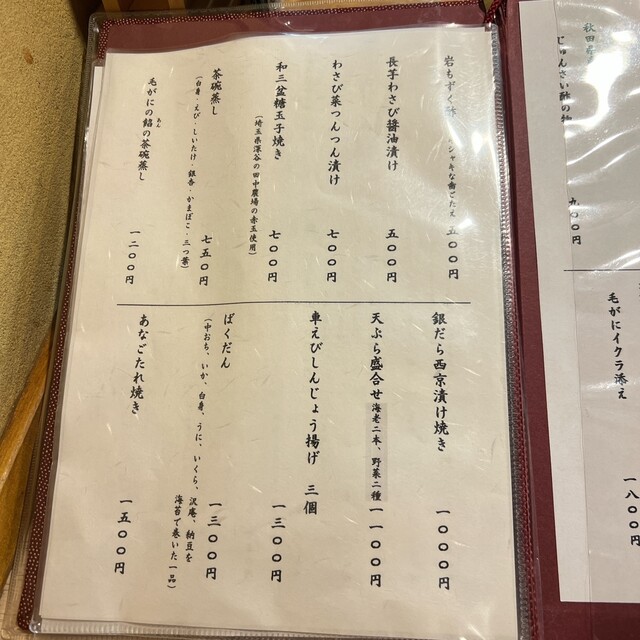 秋田
じゅんさい酢の物
九〇〇円
毛がにイクラ添え
一八〇〇円
岩もずく酢
シャキな歯ごたえ
五〇〇円
長芋わさび醤油漬け
五〇〇円
わさび菜つんつん漬け
七〇〇円
和三盆糖玉子焼き
(埼玉県深谷の田中農場の赤玉使用)
七〇〇円
茶碗蒸し
(白身・えび・しいたけ・銀杏・かまぼこ・三つ葉)
七五〇円
毛がにの餡の茶碗蒸し
あん
一二〇〇円
銀だら西京漬け焼き
一〇〇〇円
天ぷら盛合せ 海老二本、野菜二種
一一〇〇円
車えびしんじょう揚げ 三個
一三〇〇円
ばくだん
(中おち、いか、白身、うに、いくら、沢庵、納豆を
海苔で巻いた一品)
一三〇〇円
あなごたれ焼き
一五〇〇円